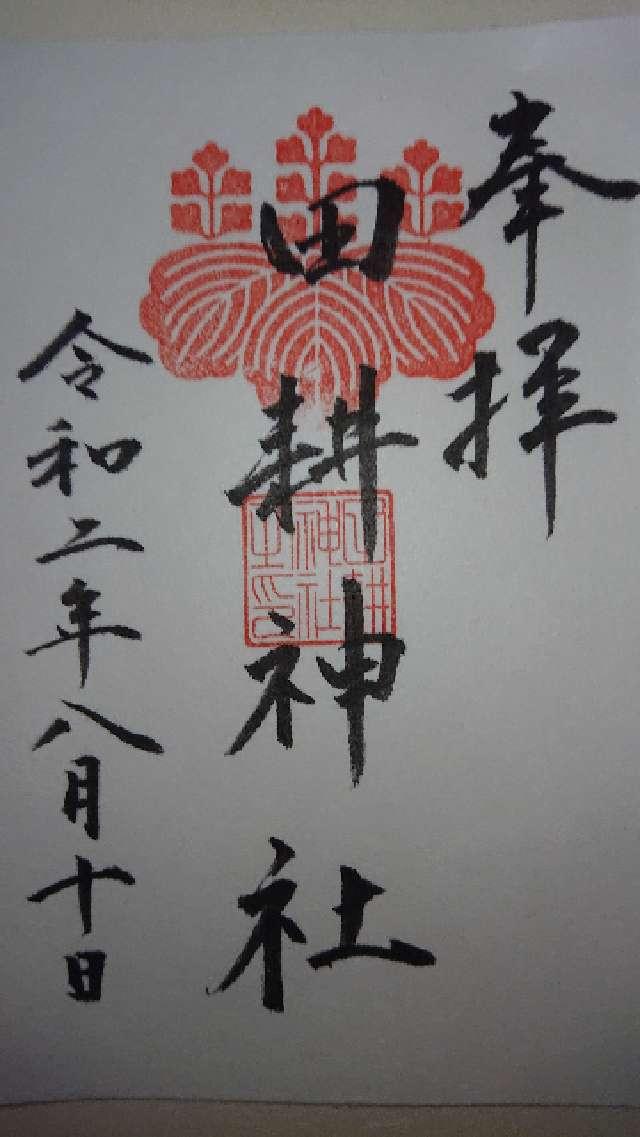 奉拝
田耕神社
田耕神社之印
令和二年八月十日